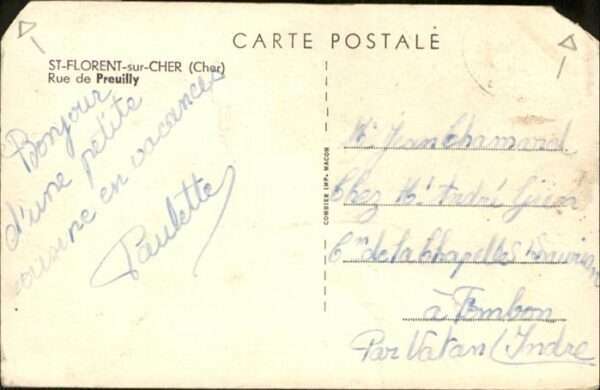 CARTE POSTALE
ST-FLORENT-sur-CHER (Cher)
Rue de Preuilly
Bonjour
d'une petite
cousine en vacances
Paulette
COMBIER IMP. MACON
Mr Jean Chamard
Chez Mr André
Cne de la Chapelle
à Tombon
Par Vatan (Indre